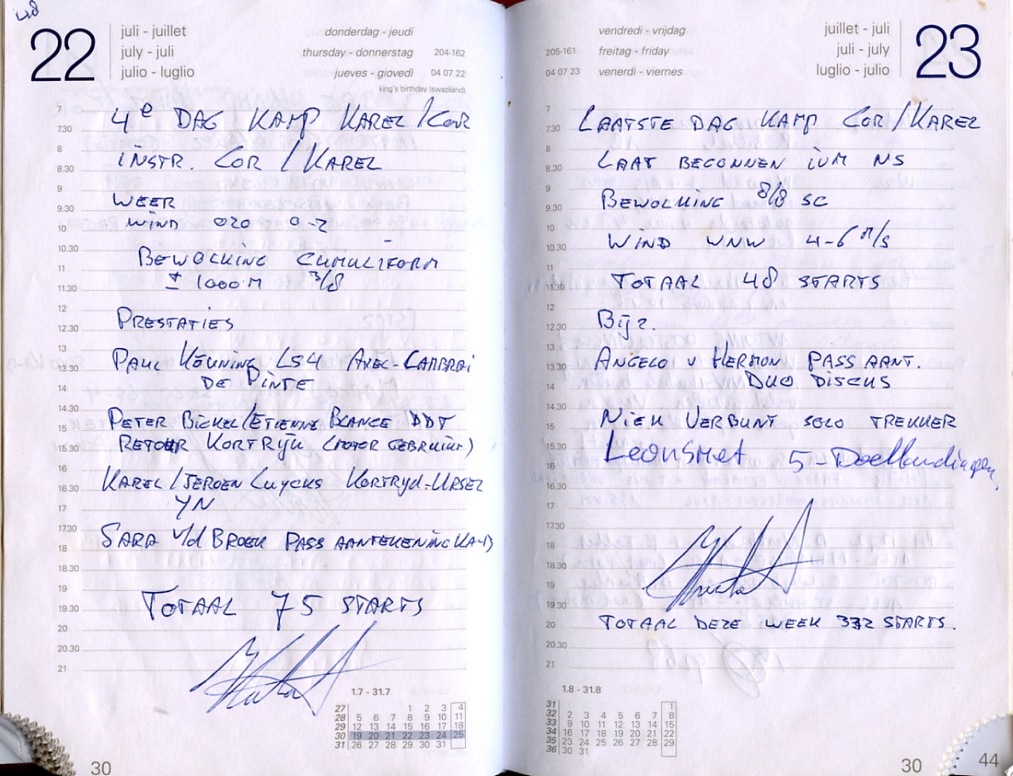 48
22
juli - juillet
july - juli
julio - luglio
donderdag - jeudi
thursday - donnerstag 204-162
jueves - giovedi 04 07 22
king's birthday (swaziland)
7 4e DAG KAMP KAREL/COR
7.30
8 INSTR. COR / KAREL
8.30
9 WEER
9.30
10 WIND 020 0-2
10.30 BEWOLKING CUMULIFORM
11 ± 1000 M 3/8
11.30
12
12.30 PRESTATIES
13
13.30 PAUL KEUNING LS4 AXEL-CAMBRAI
14 DE PINTE
14.30
15 PETER BICKEL/ETIENNE BLANCE DDT
15.30 RETOUR KORTRIJK (MOTOR GEBRUIKT)
16
16.30 KAREL/JEROEN LUYCKS KORTRYD-URSEL
17 YN
17.30
18 SARA v/d BROEK PASS AANTEKENING KA-13
18.30
19
19.30 TOTAAL 75 STARTS
20
20.30
21
1.7 - 31.7
27 1 2 3 4
28 5 6 7 8 9 10 11
29 12 13 14 15 16 17 18
30 19 20 21 22 23 24 25
31 26 27 28 29 30 31
30
vendredi - vrijdag
205-161 freitag - friday
04 07 23 venerdi - viernes
juillet - juli
juli - july
luglio - julio
23
7
7.30 LAATSTE DAG KAMP COR/KAREL
8
8.30 LAAT BEGONNEN IVM NS
9
9.30 BEWOLKING 8/8 SC
10
10.30 WIND WNW 4-6 M/S
11
11.30 TOTAAL 48 STARTS
12
12.30 BIJZ.
13
13.30 ANGELO v HERMON PASS AANT.
14 DUO DISCUS
14.30
15 NIEK VERBUNT SOLO TREKKER
15.30
16 Leonsmet 5-Doellandingen,
16.30
17
17.30
18
18.30
19
19.30
20 TOTAAL DEZE WEEK 332 STARTS.
20.30
21
1.8 - 31.8
31 1
32 2 3 4 5 6 7 8
33 9 10 11 12 13 14 15
34 16 17 18 19 20 21 22
35 23 24 25 26 27 28 29
36 30 31
30
44